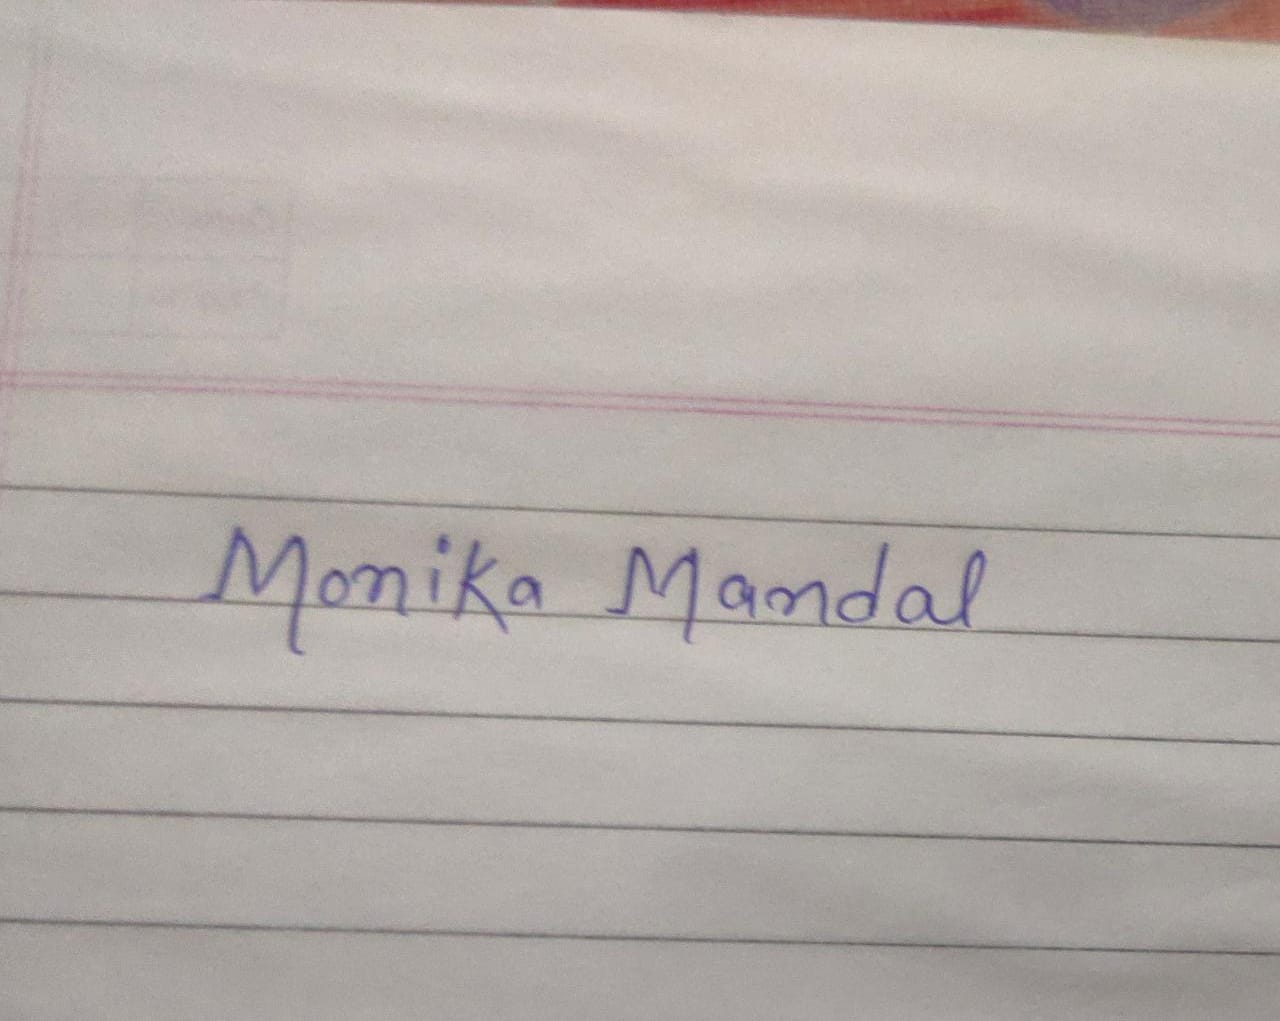 Monika Mandal